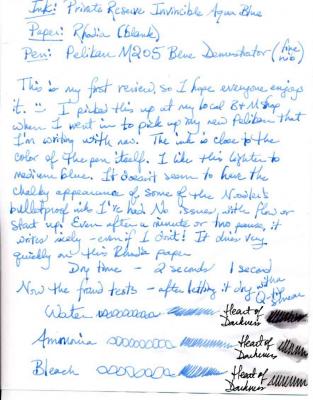 Ink: Private Reserve Invincible Aqua Blue
Paper: Rhodia (Blank)
Pen: Pelikan M205 Blue Demonstrator (fine nib)
This is my first review, so I hope everyone enjoys
it. I picked this up at my local B+M shop
when I went in to pick up my new Pelikan that
I'm writing with now. The ink is close to the
color of the pen itself. I like this lighter to
medium blue. It doesn't seem to have the
chalky appearance of some of the Noodler's
bulletproof inks I've had. No issues with flow or
start up. Even after a minute or two pause, it
writes nicely - even if I don't! It dries very
quickly on this Rhodia paper
Dry time - 2 seconds 1 second
Now the fraud tests - after letting it dry with a
Q-tip smear
Water
Heart of
Darkness
Ammonia
Heart of
Darkness
Bleach
Heart of
Darkness